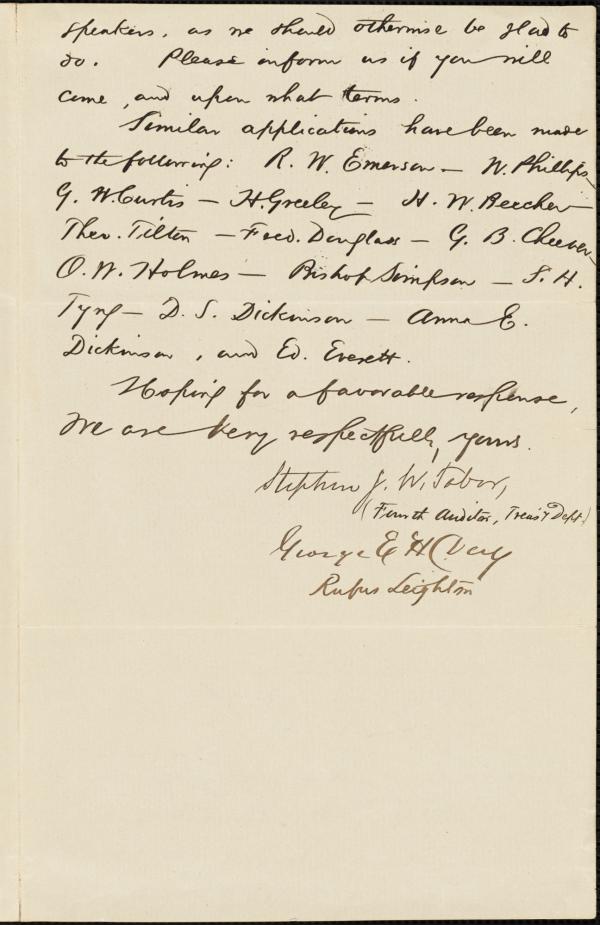 speakers, as we should otherwise be glad to
do. Please inform us if you will
come, and upon what terms.
Similar applications have been made
to the following: R. W. Emerson — W. Phillips
G. W. Curtis — H. Greeley — H. W. Beecher —
Theo. Tilton — Fred. Douglass — G. B. Cheever —
O. W. Holmes — Bishop Simpson — S. H.
Tyng — D. S. Dickinson — Anna E.
Dickinson, and Ed. Everett.
Hoping for a favorable response,
We are very respectfully, yours.
Stephen J. W. Tabor,
(Fourth Auditor, Treasy Dept.)
George E H
Rufus Leighton